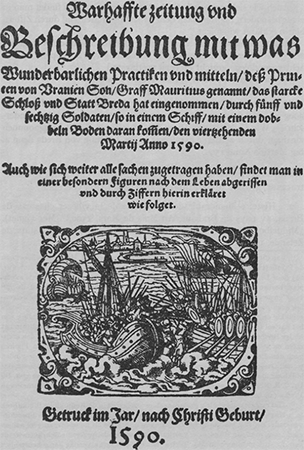 Warhaffte zeitung vnd
Beschreibung mit was
Wunderbarlichen Practiken vnd mitteln/ deß Prin-
tzen von Vranien Son/ Graff Mauritius genannt/ das starcke
Schloß vnd Statt Breda hat eingenommen/ durch fünff vnd
sechtzig Soldaten/ so in einem Schiff/ mit einem dob-
beln Boden daran kommen/ den viertzehenden
Martij Anno 1590.
Auch wie sich weiter alle sachen zugetragen haben/ findet man in
einer besondern Figuren nach dem Leben abgerissen
vnd durch Ziffern hierin erkläret
wie folget.
Getruckt im Jar/ nach Christi Geburt/
1590.